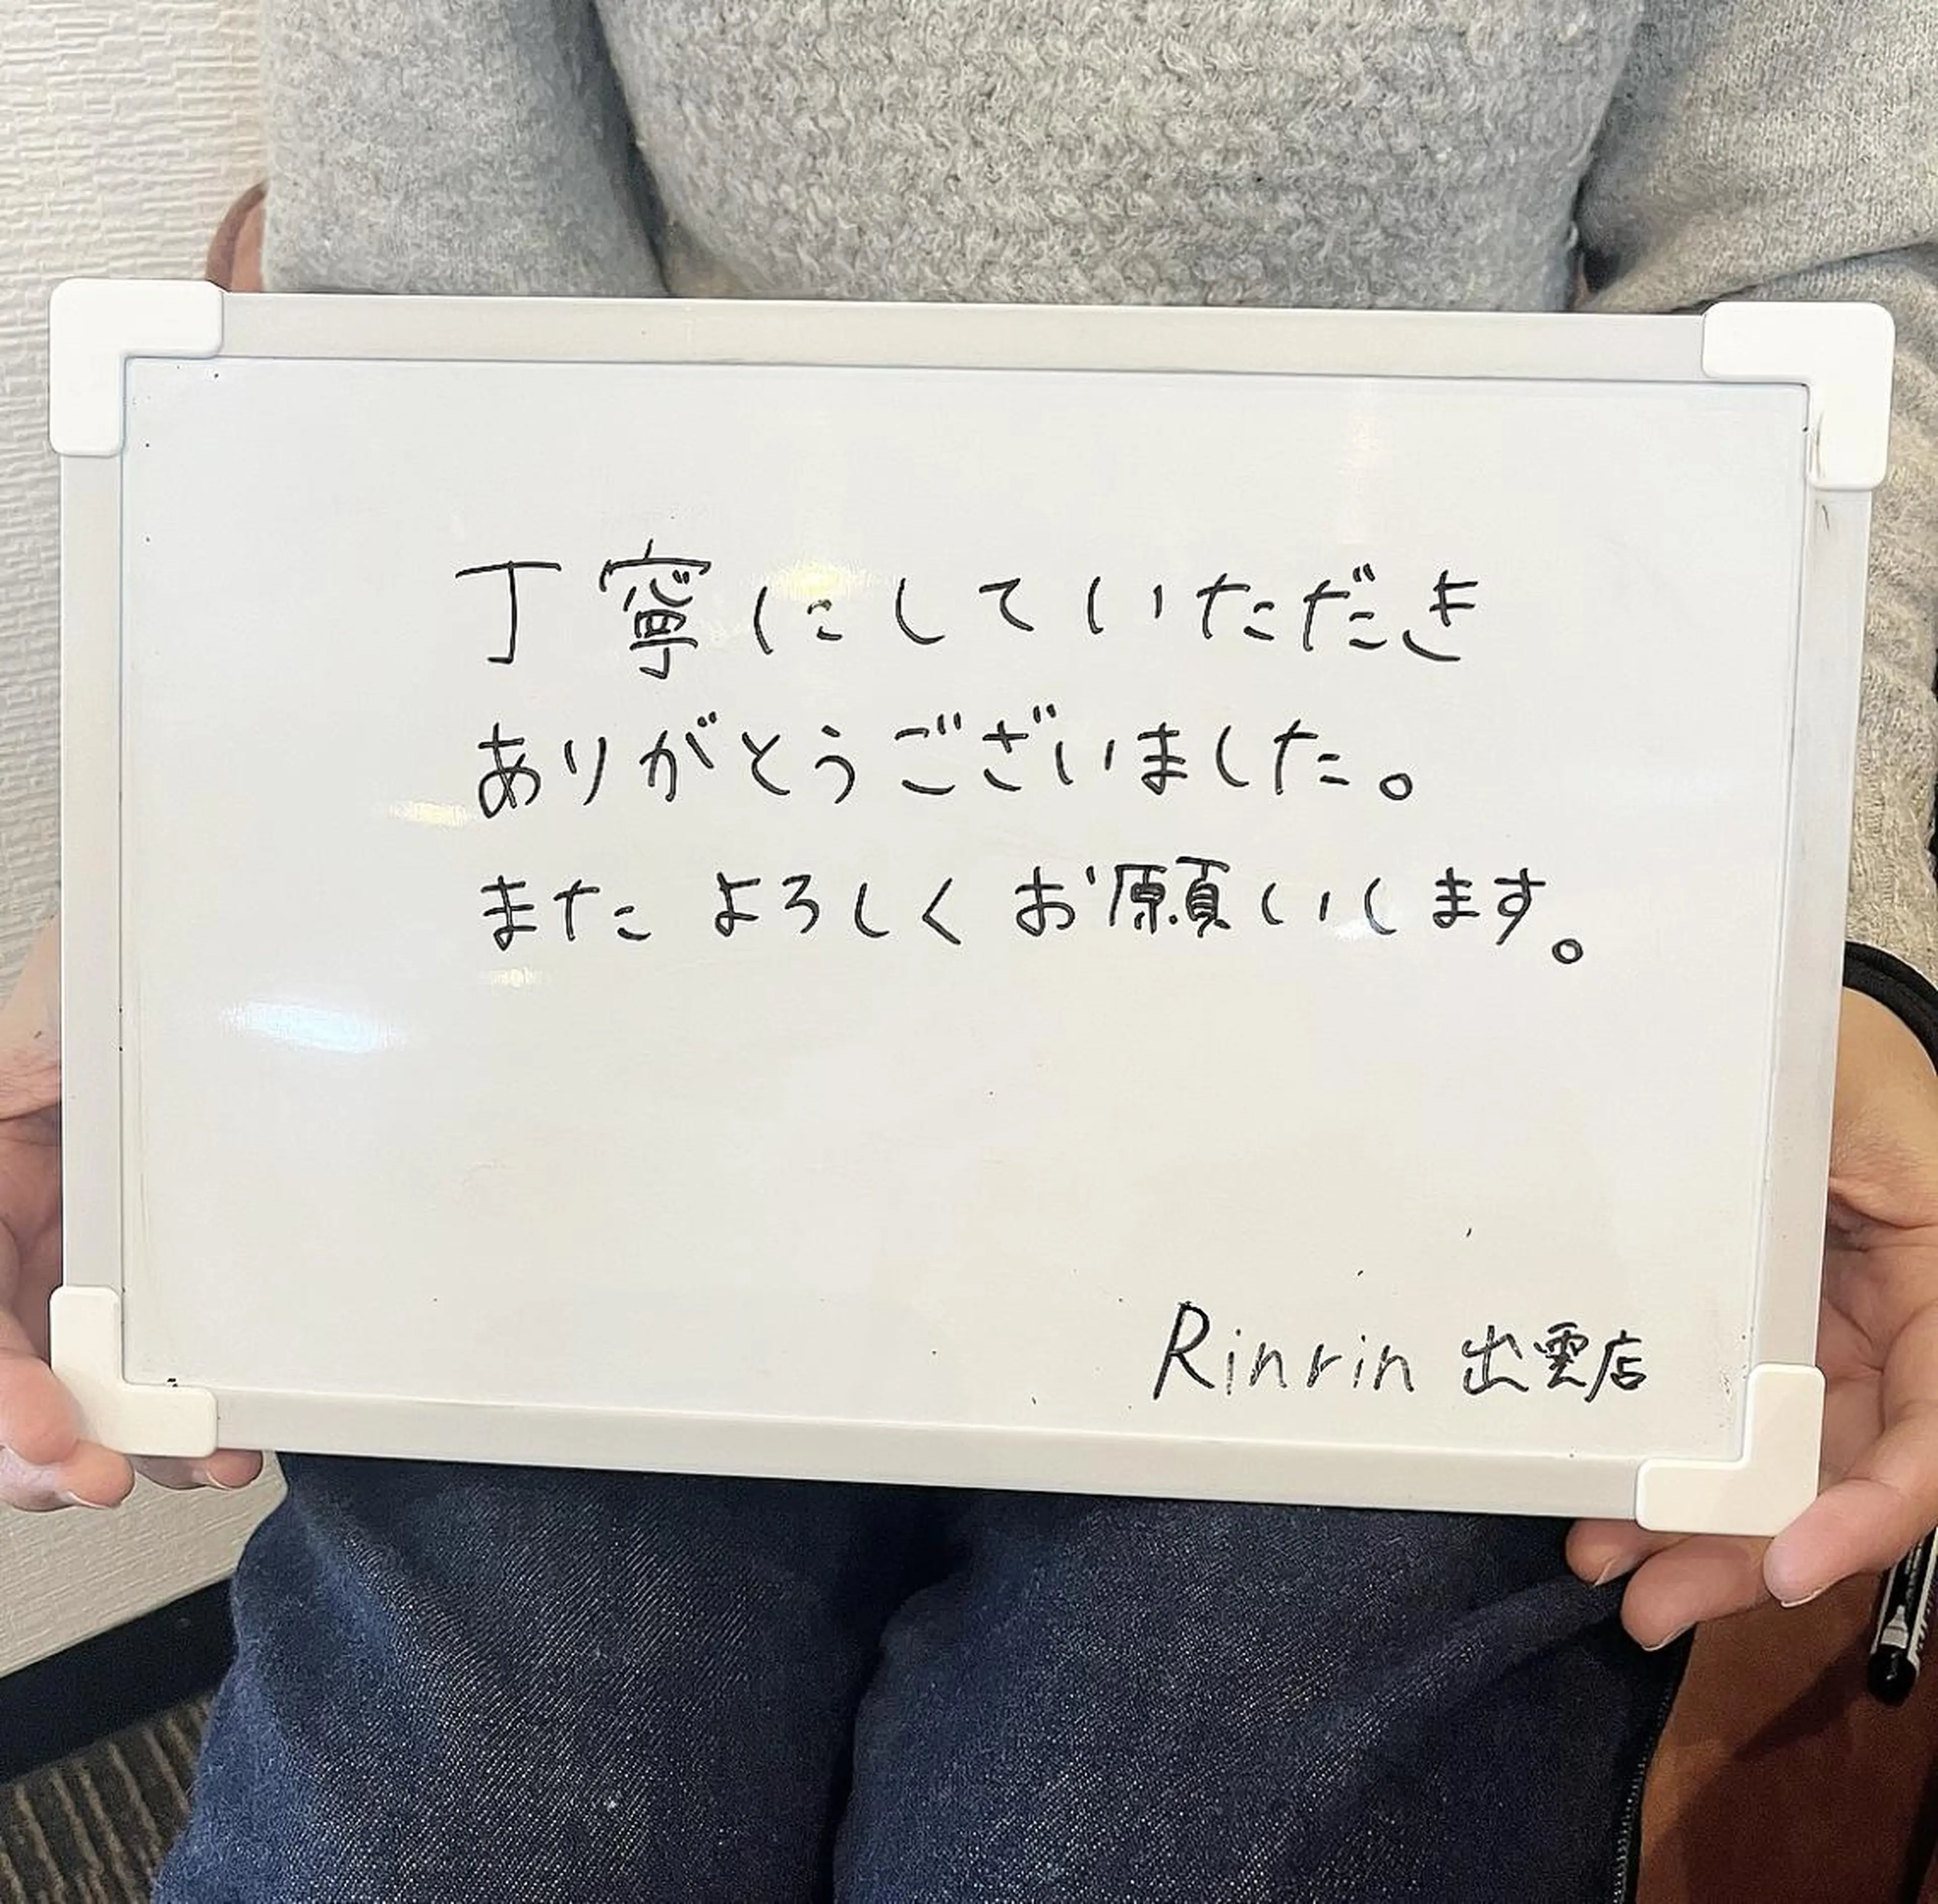 丁寧にしていただき
ありがとうございました。
また よろしく お願いします。
Rinrin 出雲店